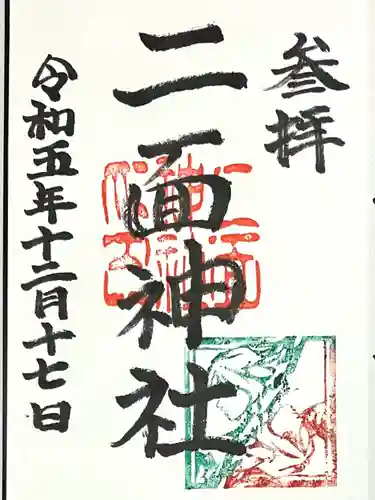 参拝
二面神社
令和五年十二月十七日